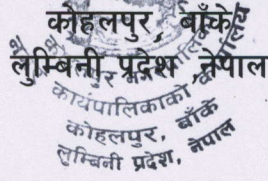 कोहलपुर, बाँके
लुम्बिनी प्रदेश ,नेपाल
कार्यपालिकाको
कोहलपुर, बाँके
लुम्बिनी प्रदेश, नेपाल